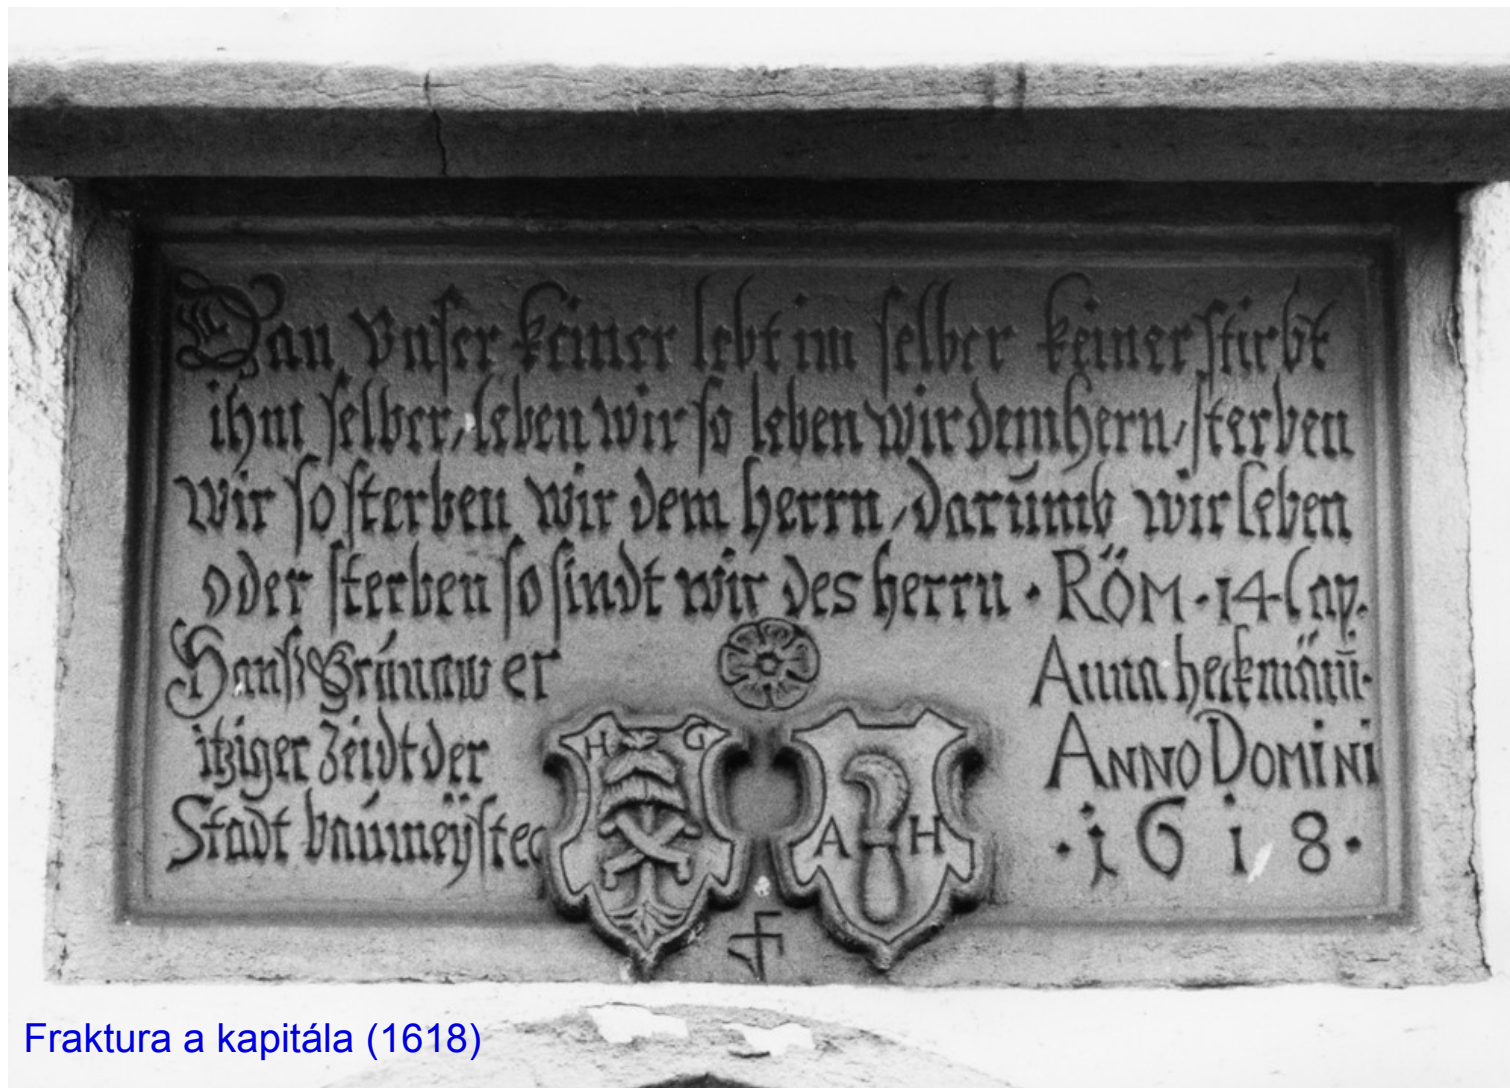 Dan vnser keiner lebt im selber keiner stirbt
ihm selber, leben wir so leben wir dem hern, sterben
wir so sterben wir dem herrn, darúmb wir leben
oder sterben so sindt wir des herrn · RÖM · 14 Cap.
Hans Grúnawer
itziger zeidt der
Stadt baúmeÿster
Anna heckmänĩ ·
ANNO DOMINI
· 1618 ·
H G
A H
Fraktura a kapitála (1618)